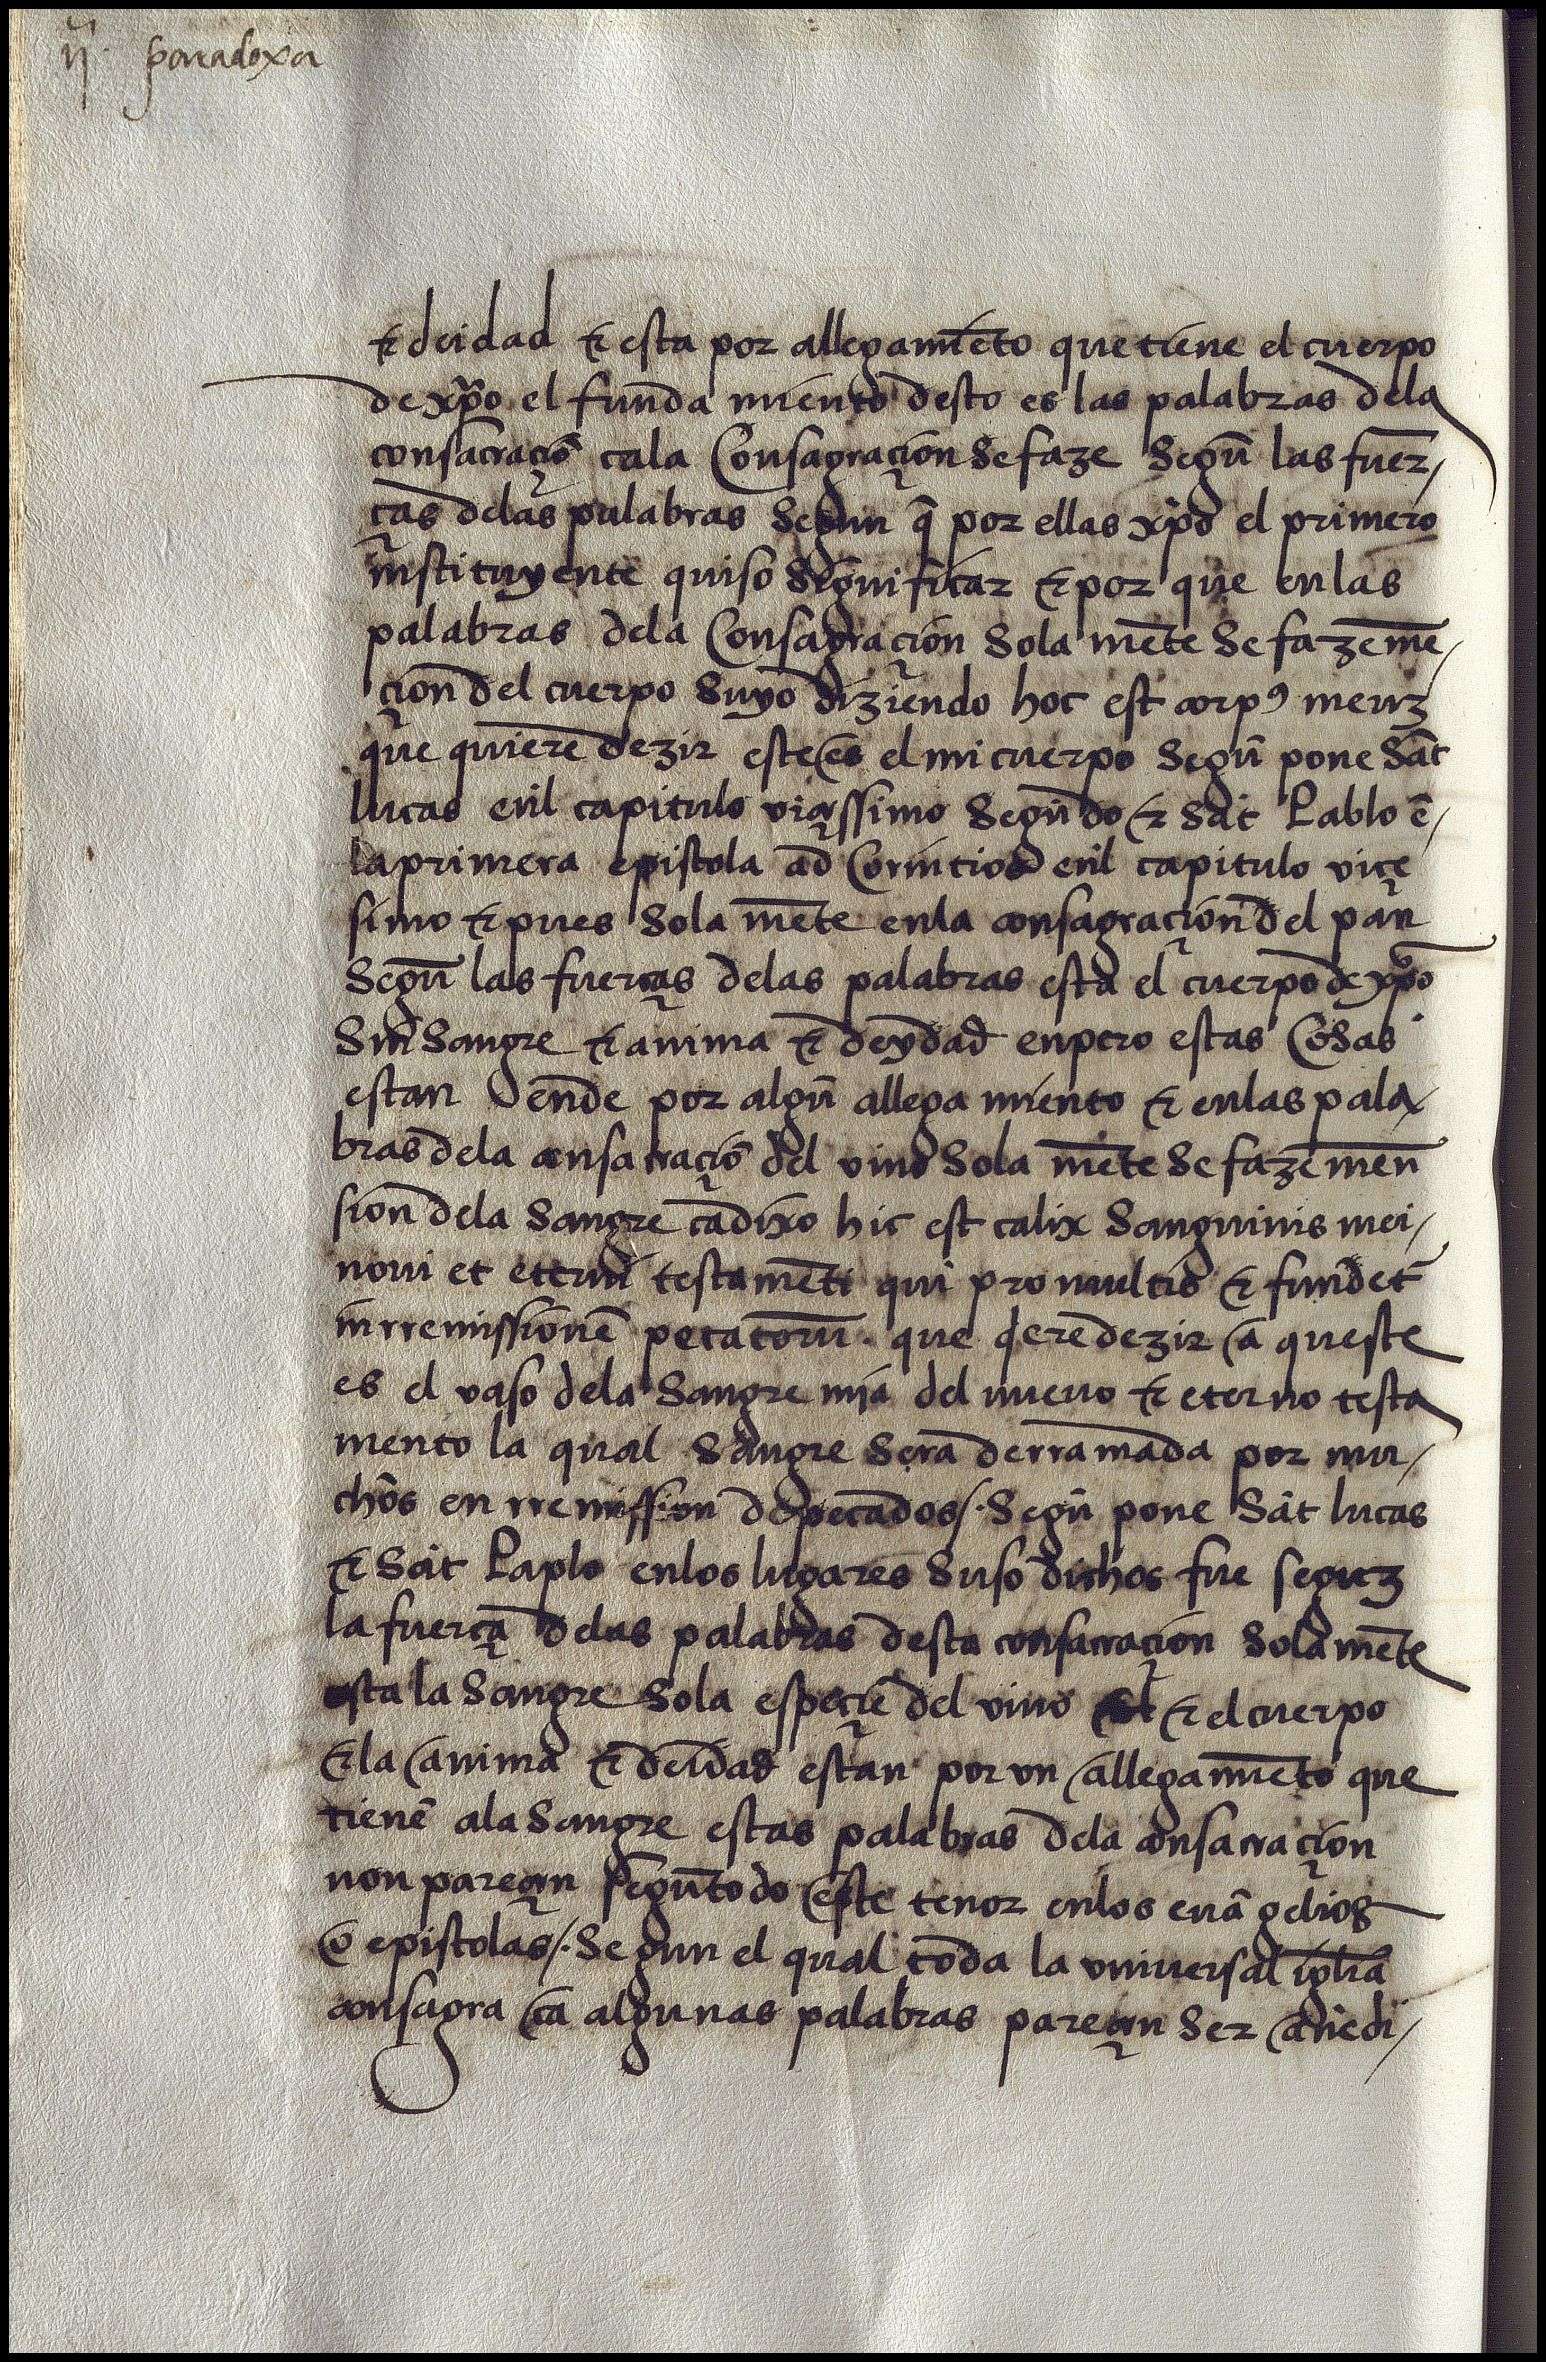 ij. paradoxa
⁊ deidad ⁊ esta por allegamiẽto que tiene el cuerpo
de xp̃o el funda miento desto es las palabras dela
consacraciõ ca la Consagraçion se faze segũ las fuer/
ças delas palabras segun q̃ por ellas xp̃o el primero
instituyente quiso significar ⁊ por que enlas
palabras dela Consagraçion sola mẽte se faze mẽ/
çion del cuerpo suyo diziendo hoc est corpꝰ meuz
que quiere dezir este es el mi cuerpo segũ pone sãt
lucas enl capitulo viçessimo segũdo ⁊ sãt Pablo ẽ/
la primera epistola ad Corintios enl capitulo viçe
simo ⁊ pues sola mẽte enla consagraçion del pan
segũ las fuerças delas palabras esta el cuerpo de xp̃o
sin sangre ⁊ anima ⁊ deydad enpero estas Cosas
estan ende por algũ allega miento ⁊ enlas pala/
bras dela consacraçiõ del vino sola mẽte se faze men
sion dela sangre ca dixo hic est calix sanguinis mei/
noui et eterni testamẽti qui pro multis ⁊ fundet᷑
in rremissionẽ pecatorũ. que q̃ere dezir a queste
es el vaso dela sangre mja del nueuo ⁊ eterno testa
mento la qual sangre sera derramada por mu/
chos en rremission de pecados/. segũ pone sãt lucas
⁊ sãt Paplo enlos lugares suso dichos fue seguz
la fuerça delas palabras desta consacraçion sola mẽte
esta la sangre sola espeçie del vino ⁊ el cuerpo
⁊ la anima ⁊ deidad estan por vn allegamiẽto que
tienẽ ala sangre estas palabras dela consacraçion
non pareçen segũ todo este tenor enlos euãgelios
o epistolas/. segun el qual toda la vniuersal igl̃ia
consagra ca algunas palabras pareçen ser añedi/